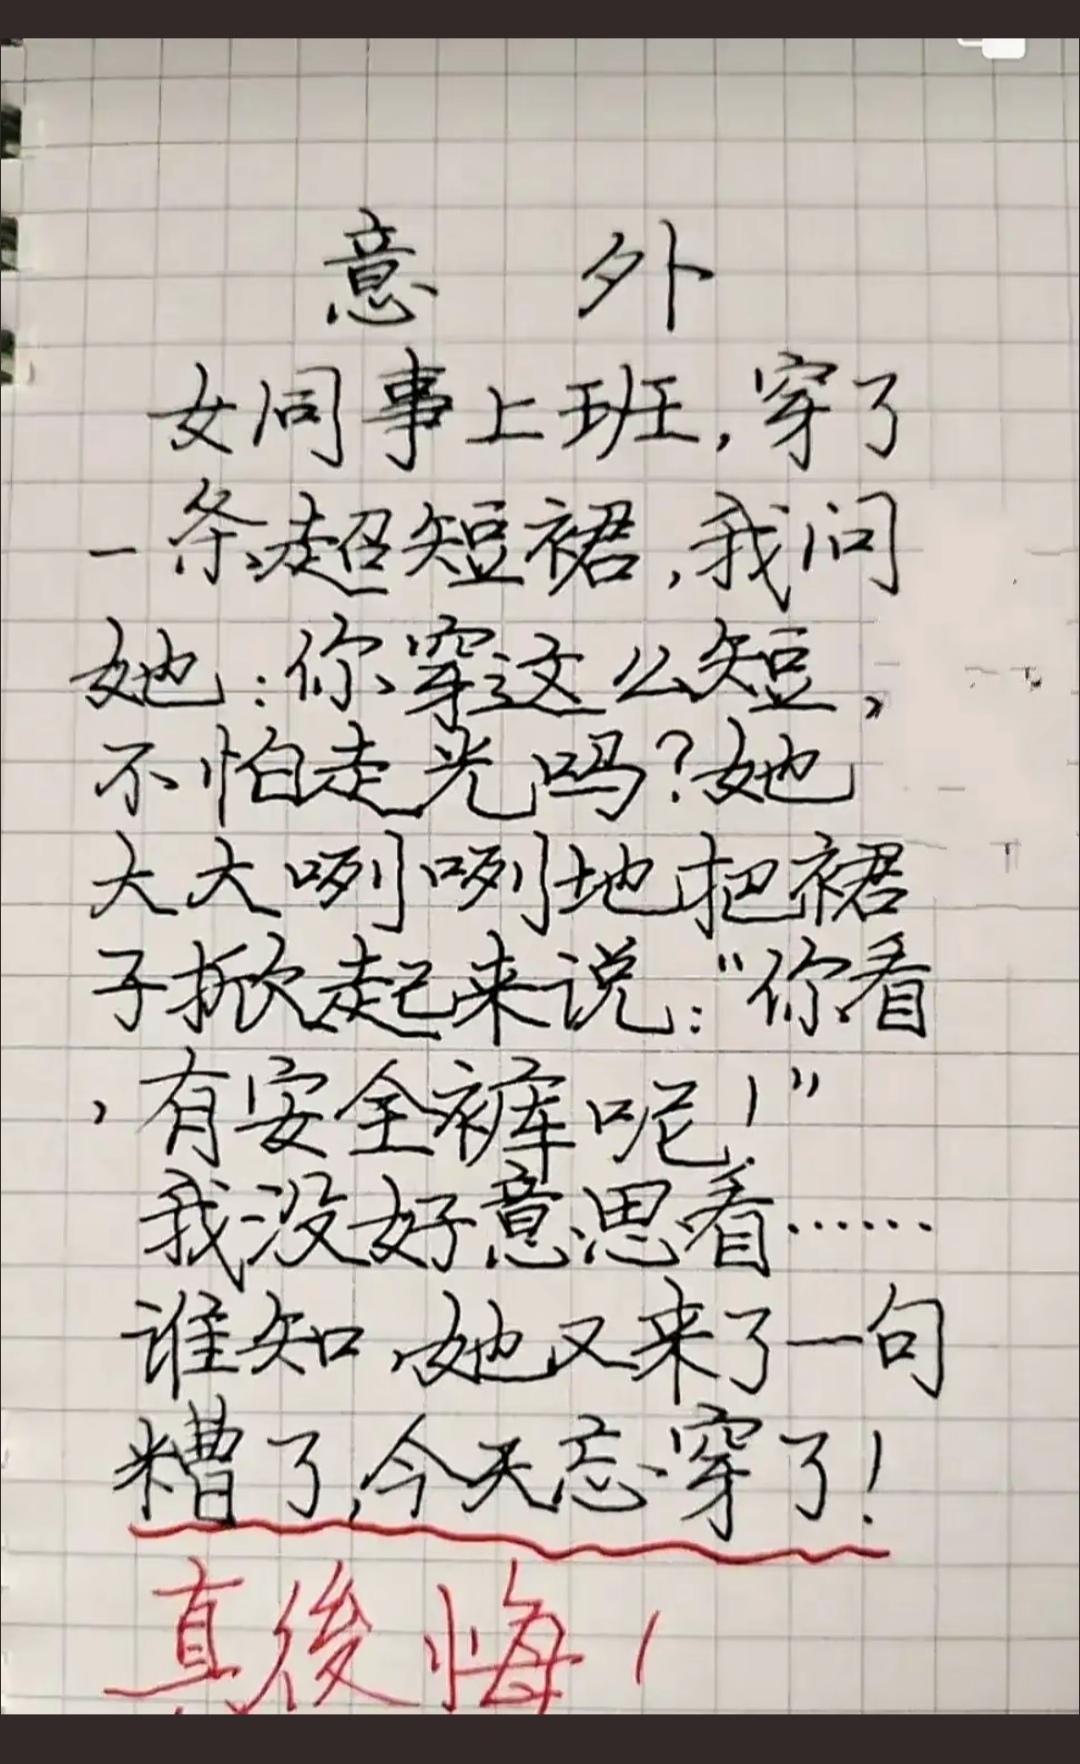 意 外
女同事上班,穿了
一条超短裙,我问
她:你穿这么短,
不怕走光吗?她
大大咧咧地把裙
子掀起来说:“你看
,有安全裤呢!”
我没好意思看……
谁知,她又来了一句
糟了,今天忘穿了!
真後悔!